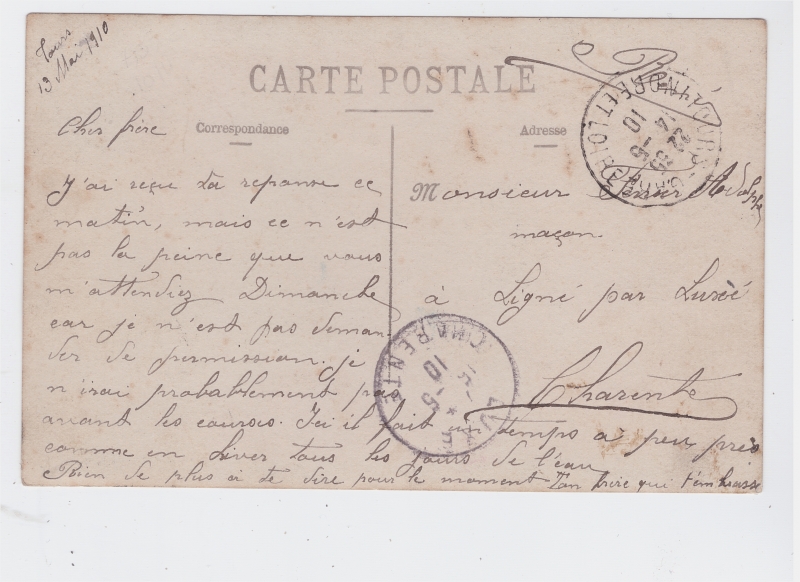 Tours
13 Mai 1910
CARTE POSTALE
Correspondance
Adresse
Cher frère
J'ai reçu ta reponse ce
matin, mais ce n'est
pas la peine que vous
m'attendiez Dimanche
car je n'est pas deman
der de permission. je
n'irai probablement pas
avant les courses. Ici il fait un temps a peu près
comme en hiver tous les jours de l'eau
Rien de plus a te dire pour le moment Ton frère qui t'embrasse
Monsieur Ferrier
maçon
à Ligné par Luxé
Charente
INDRE ET LOIRE
22 30
14 - 5
10
CHARENTE
10